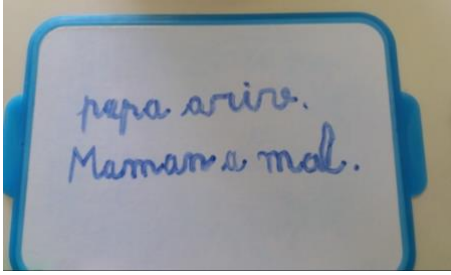 papa arive.
Maman a mal.